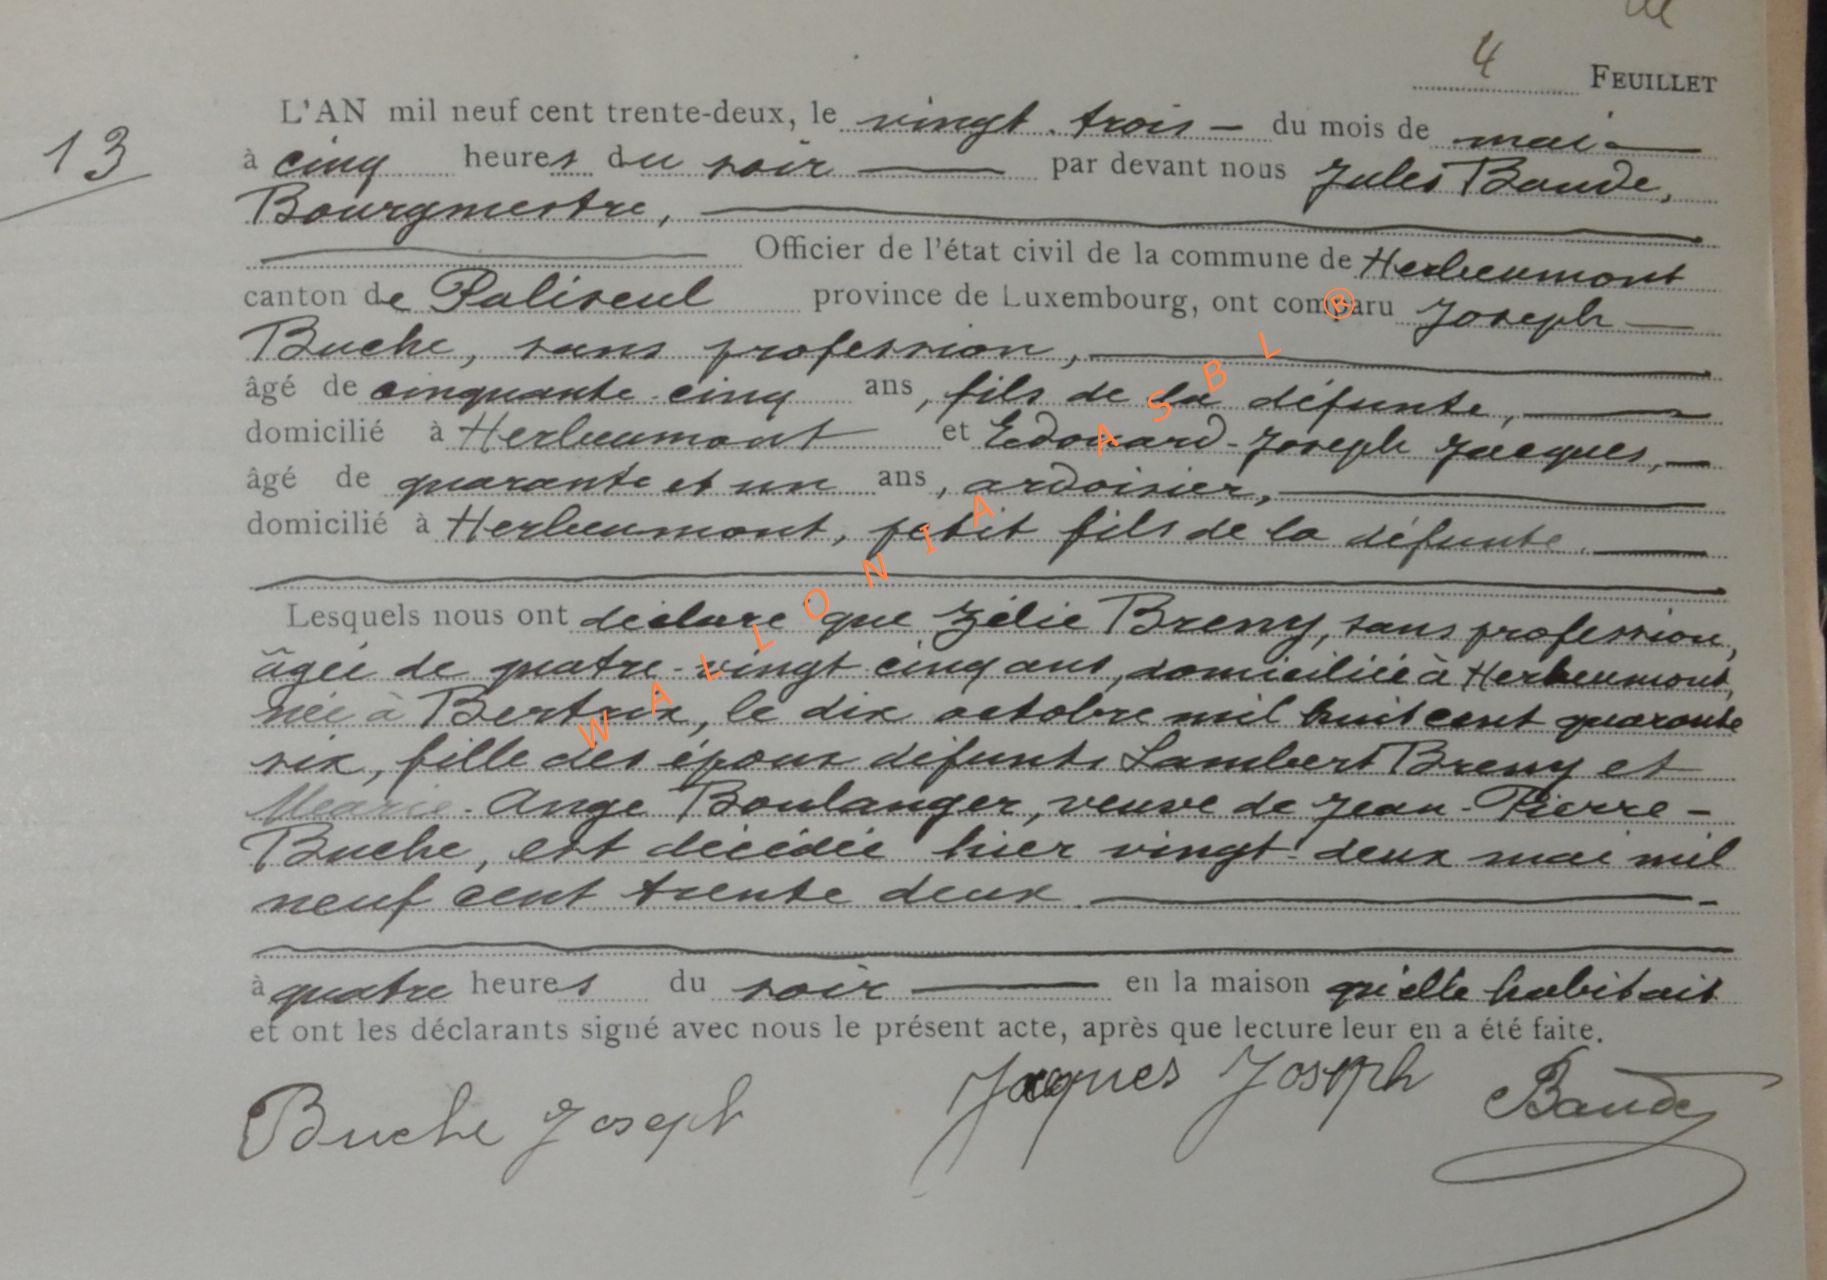 4 FEUILLET
13
L'AN mil neuf cent trente-deux, le vingt-trois du mois de mai
à cinq heures du soir par devant nous Jules Baude,
Bourgmestre,
Officier de l'état civil de la commune de Herbeumont
canton de Paliseul province de Luxembourg, ont comparu Joseph
Buche, sans profession,
âgé de cinquante-cinq ans, fils de la défunte,
domicilié à Herbeumont et Edouard-Joseph Jacques,
âgé de quarante et un ans, ardoisier,
domicilié à Herbeumont, petit fils de la défunte.
Lesquels nous ont déclaré que Zélie Breny, sans profession,
âgée de quatre-vingt cinq ans, domiciliée à Herbeumont,
née à Bertrix, le dix octobre mil huit cent quarante
six, fille des époux défunts Lambert Breny et
Marie-Ange Boulanger, veuve de Jean-Pierre
Buche, est décédée hier vingt-deux mai mil
neuf cent trente deux.
à quatre heures du soir en la maison qu'elle habitait
et ont les déclarants signé avec nous le présent acte, après que lecture leur en a été faite.
Buche Joseph Jacques Joseph Baude
WALLONIA ASBL ®